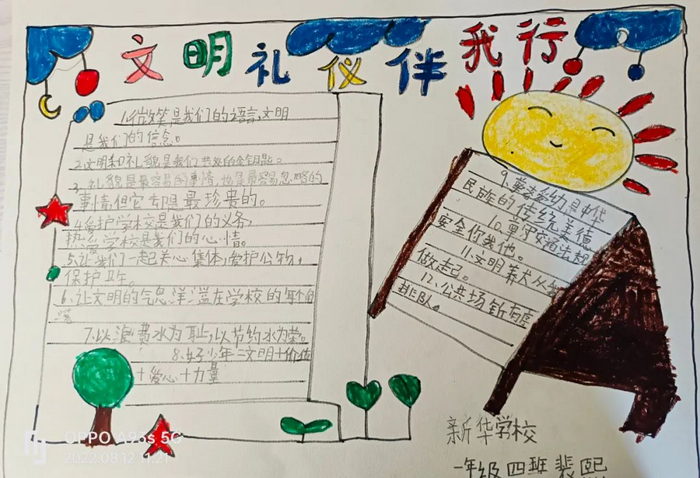 文明礼仪伴我行
1.微笑是我们的语言,文明
是我们的信念。
2.文明和礼貌是我们共处的金钥匙。
3.礼貌是最容易的事情,也是最容易忽略的
事情,但它却是最珍贵的。
4.爱护学校是我们的义务,
学校是我们的心情。
5.让我们一起关心集体,爱护公物,
保护卫生。
6.让文明的气息洋溢在学校的每个角
落
7.以浪费水为耻,以节约水为荣。
8.好少年=文明+价值
+爱心+力量
9.尊老爱幼是中华
民族的传统美德
10.遵守交通法规
安全你我他。
11.文明养犬从
做起。
12.公共场所
排队。
新华学校
一年级四班裴熙
OPPO A93s 5G
2022.08.12 11:21